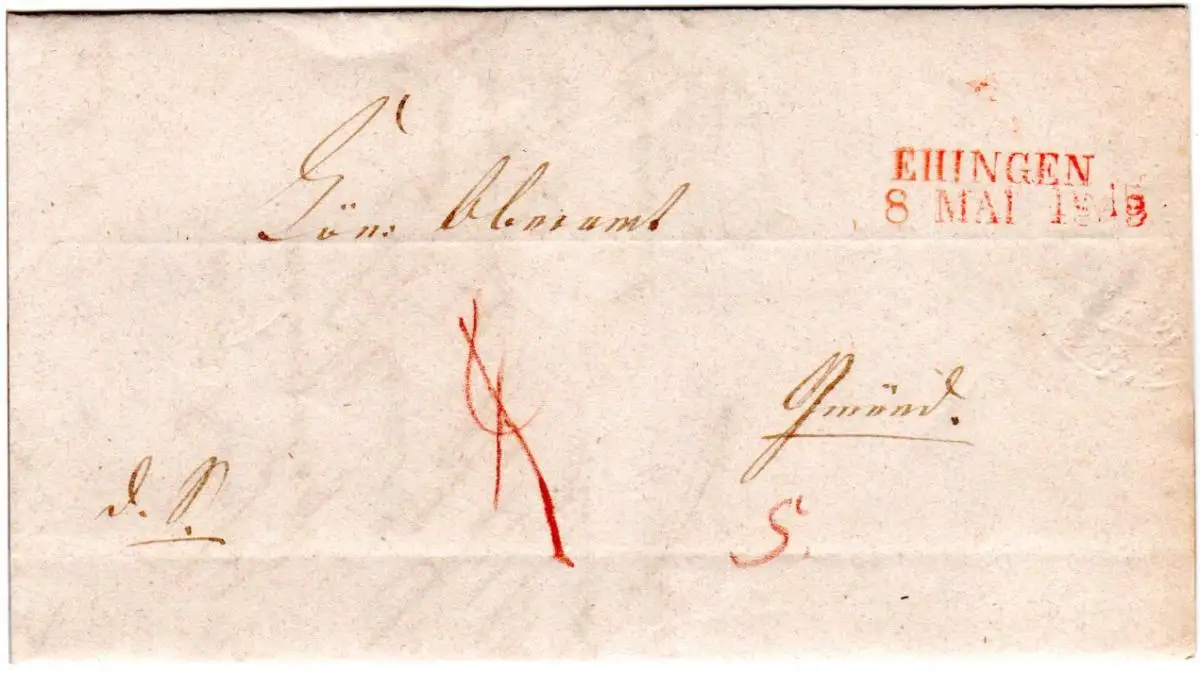 EHINGEN
8 MAI 184
Kön: Oberamt
Gmünd.
d. S.
S.